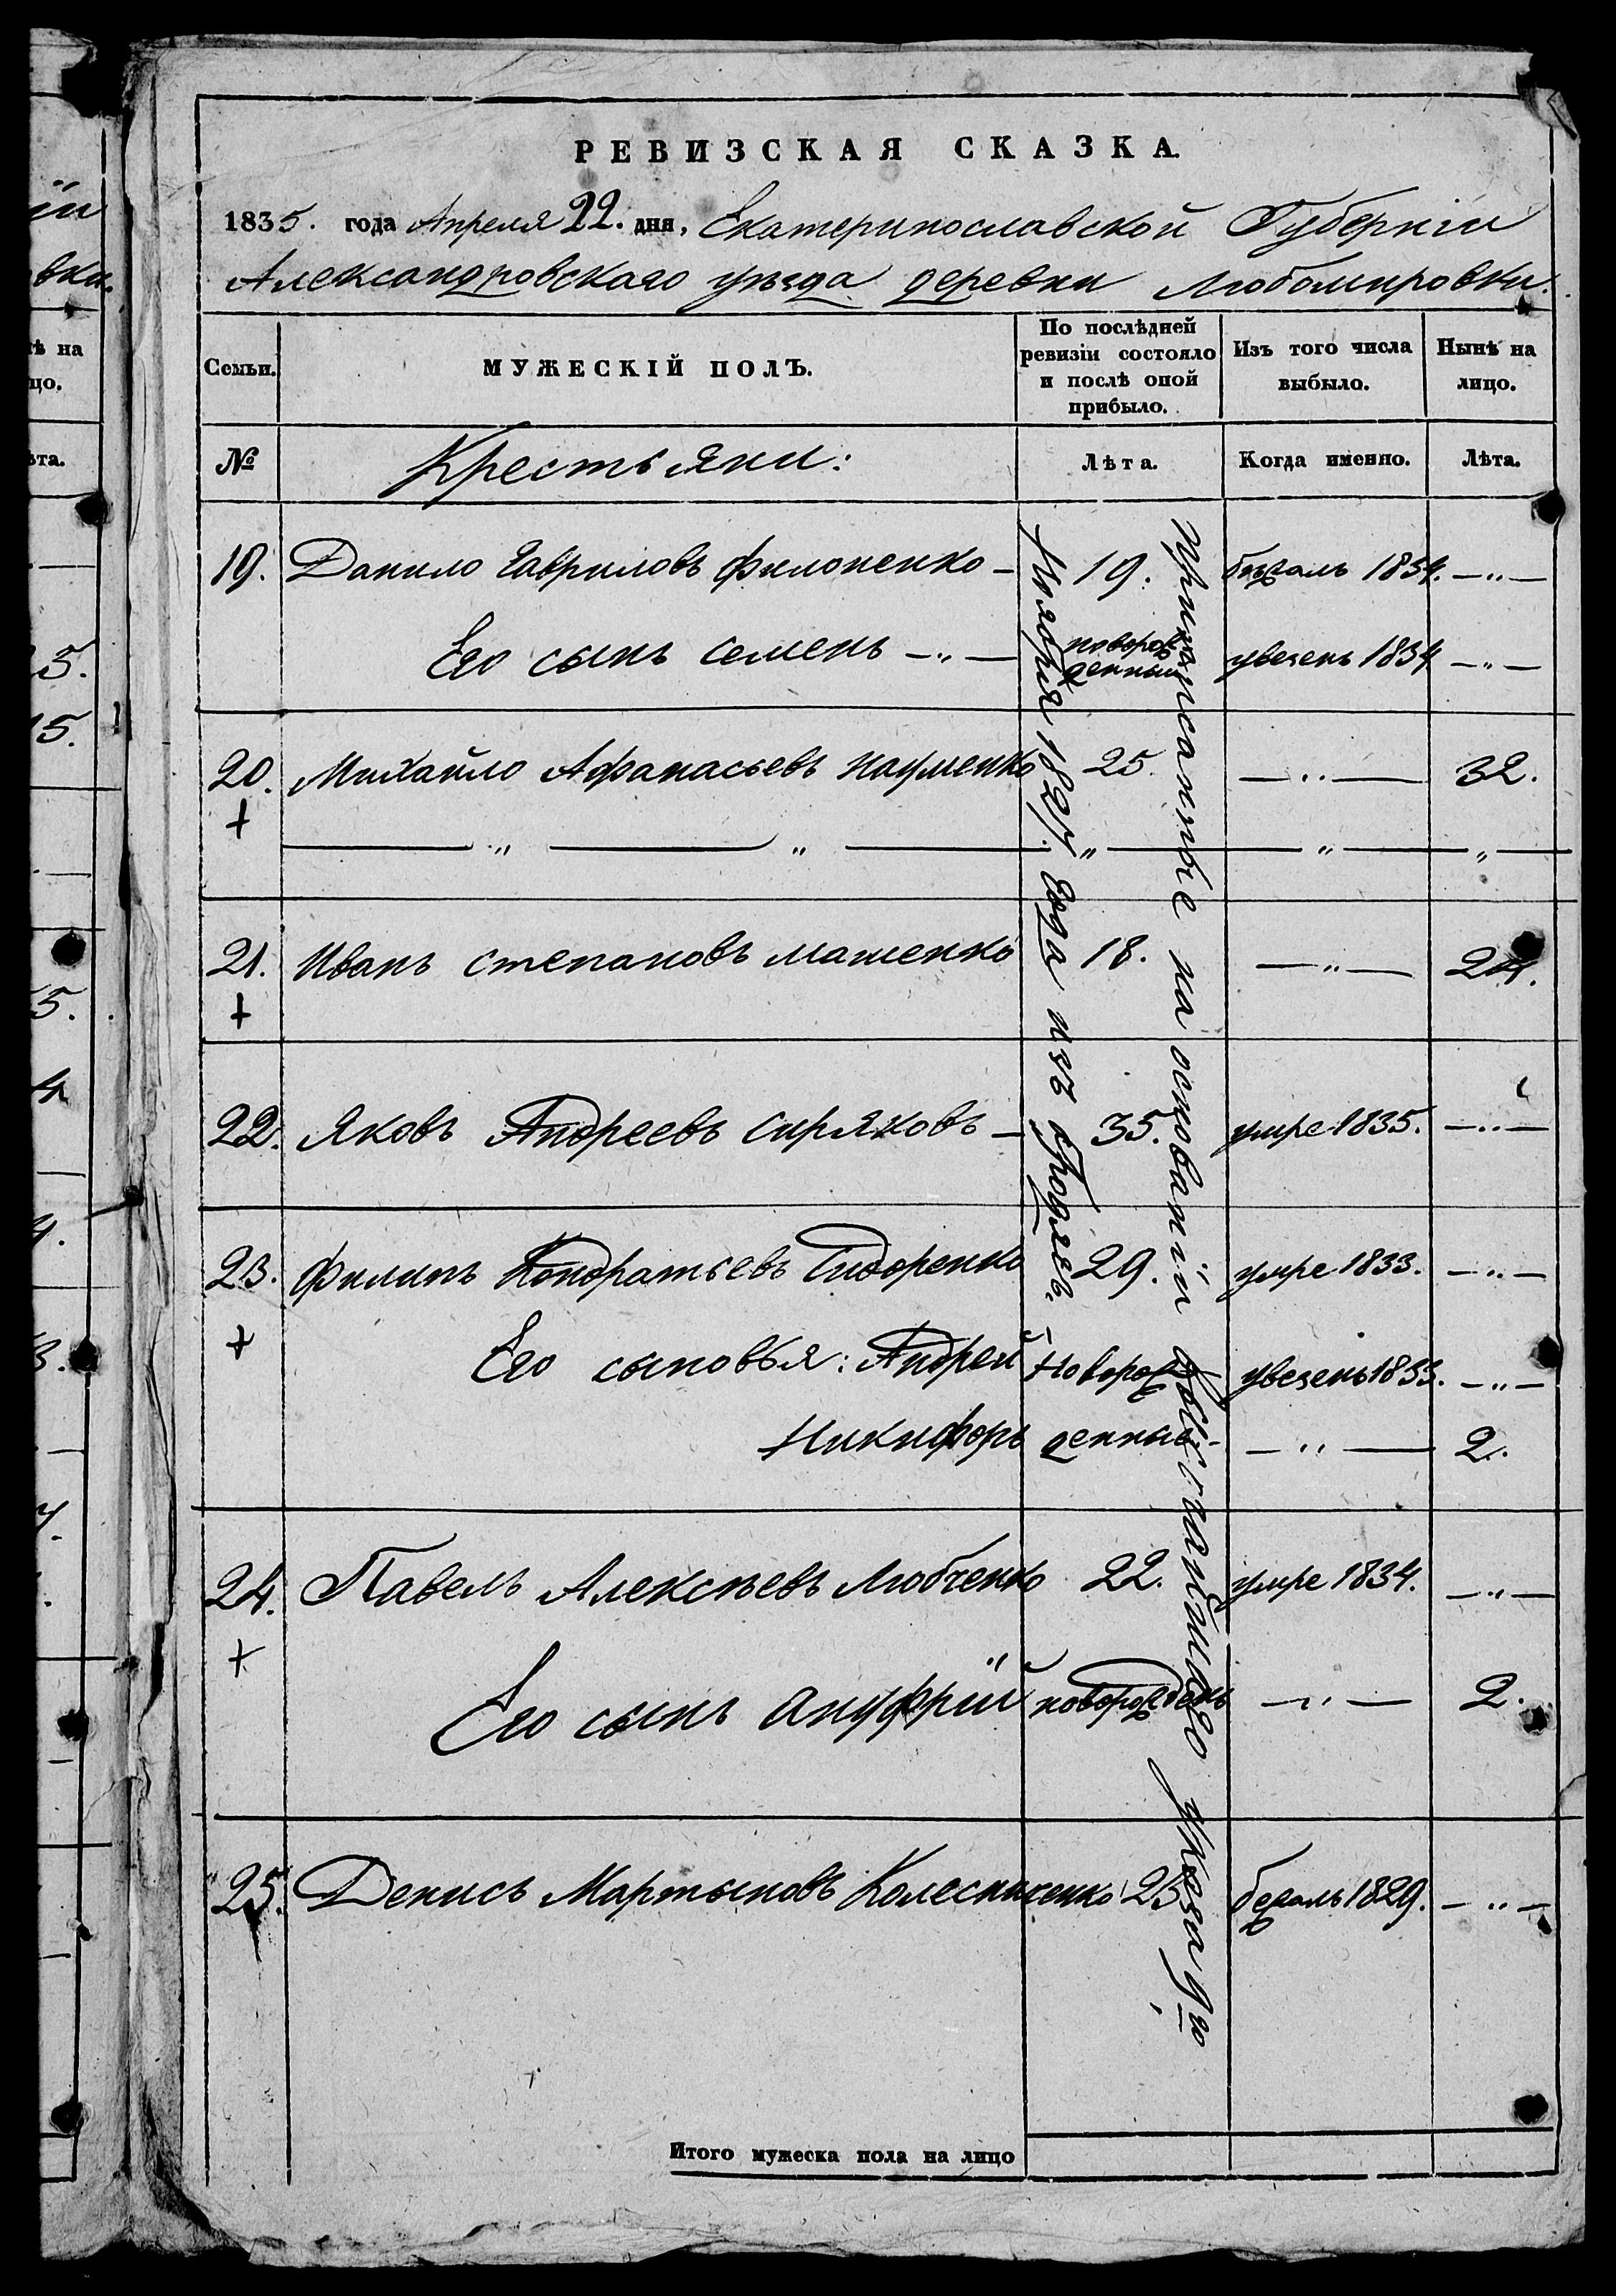 РЕВИЗСКАЯ СКАЗКА.
1835. года Апреля 22. дня, Екатеринославской Губерніи
Александровскаго уѣзда деревни Любомировки.
Семьи.
МУЖЕСКІЙ ПОЛЪ.
По послѣдней
ревизіи состояло
и послѣ оной
прибыло.
Изъ того числа
выбыло.
Нынѣ на
лицо.
№ Крестьяни: Лѣта. Когда именно. Лѣта.
19. Данило Гавриловъ Филоненко — 19. бѣгалъ 1834. — „ —
Его сынъ семенъ — „ — новорож
денный увезенъ 1834 — „ —
20. Михайло Афанасьевъ Науменко 25. — „ — 32.
+
— „ — „ — „ — „ — „ —
21. Иванъ степановъ машенко 18. — „ — 24.
+
22. Яковъ Андреевъ сиряковъ — 35. умре 1835. — „ —
23. Филипъ Кондратьевъ Сидоренко 29. умре 1833. — „ —
+
Его сыновья: Андрей Новорож увезенъ 1833. — „ —
Никифоръ денные — „ — 2.
24. Павелъ Алексѣевъ Любченко 22. умре 1834. — „ —
+
Его сынъ ануфрій новорожденъ — „ — 2.
25. Денисъ Мартыновъ Колесниченко 25 бегалъ 1829. — „ —
приписанные на основаніи Высочайшаго указа 9го
Ноября 1827. года изъ бродягъ.
Итого мужеска пола на лицо
ій
вки.
ѣ на
цо.
ѣта.
5.
15.
5.
4